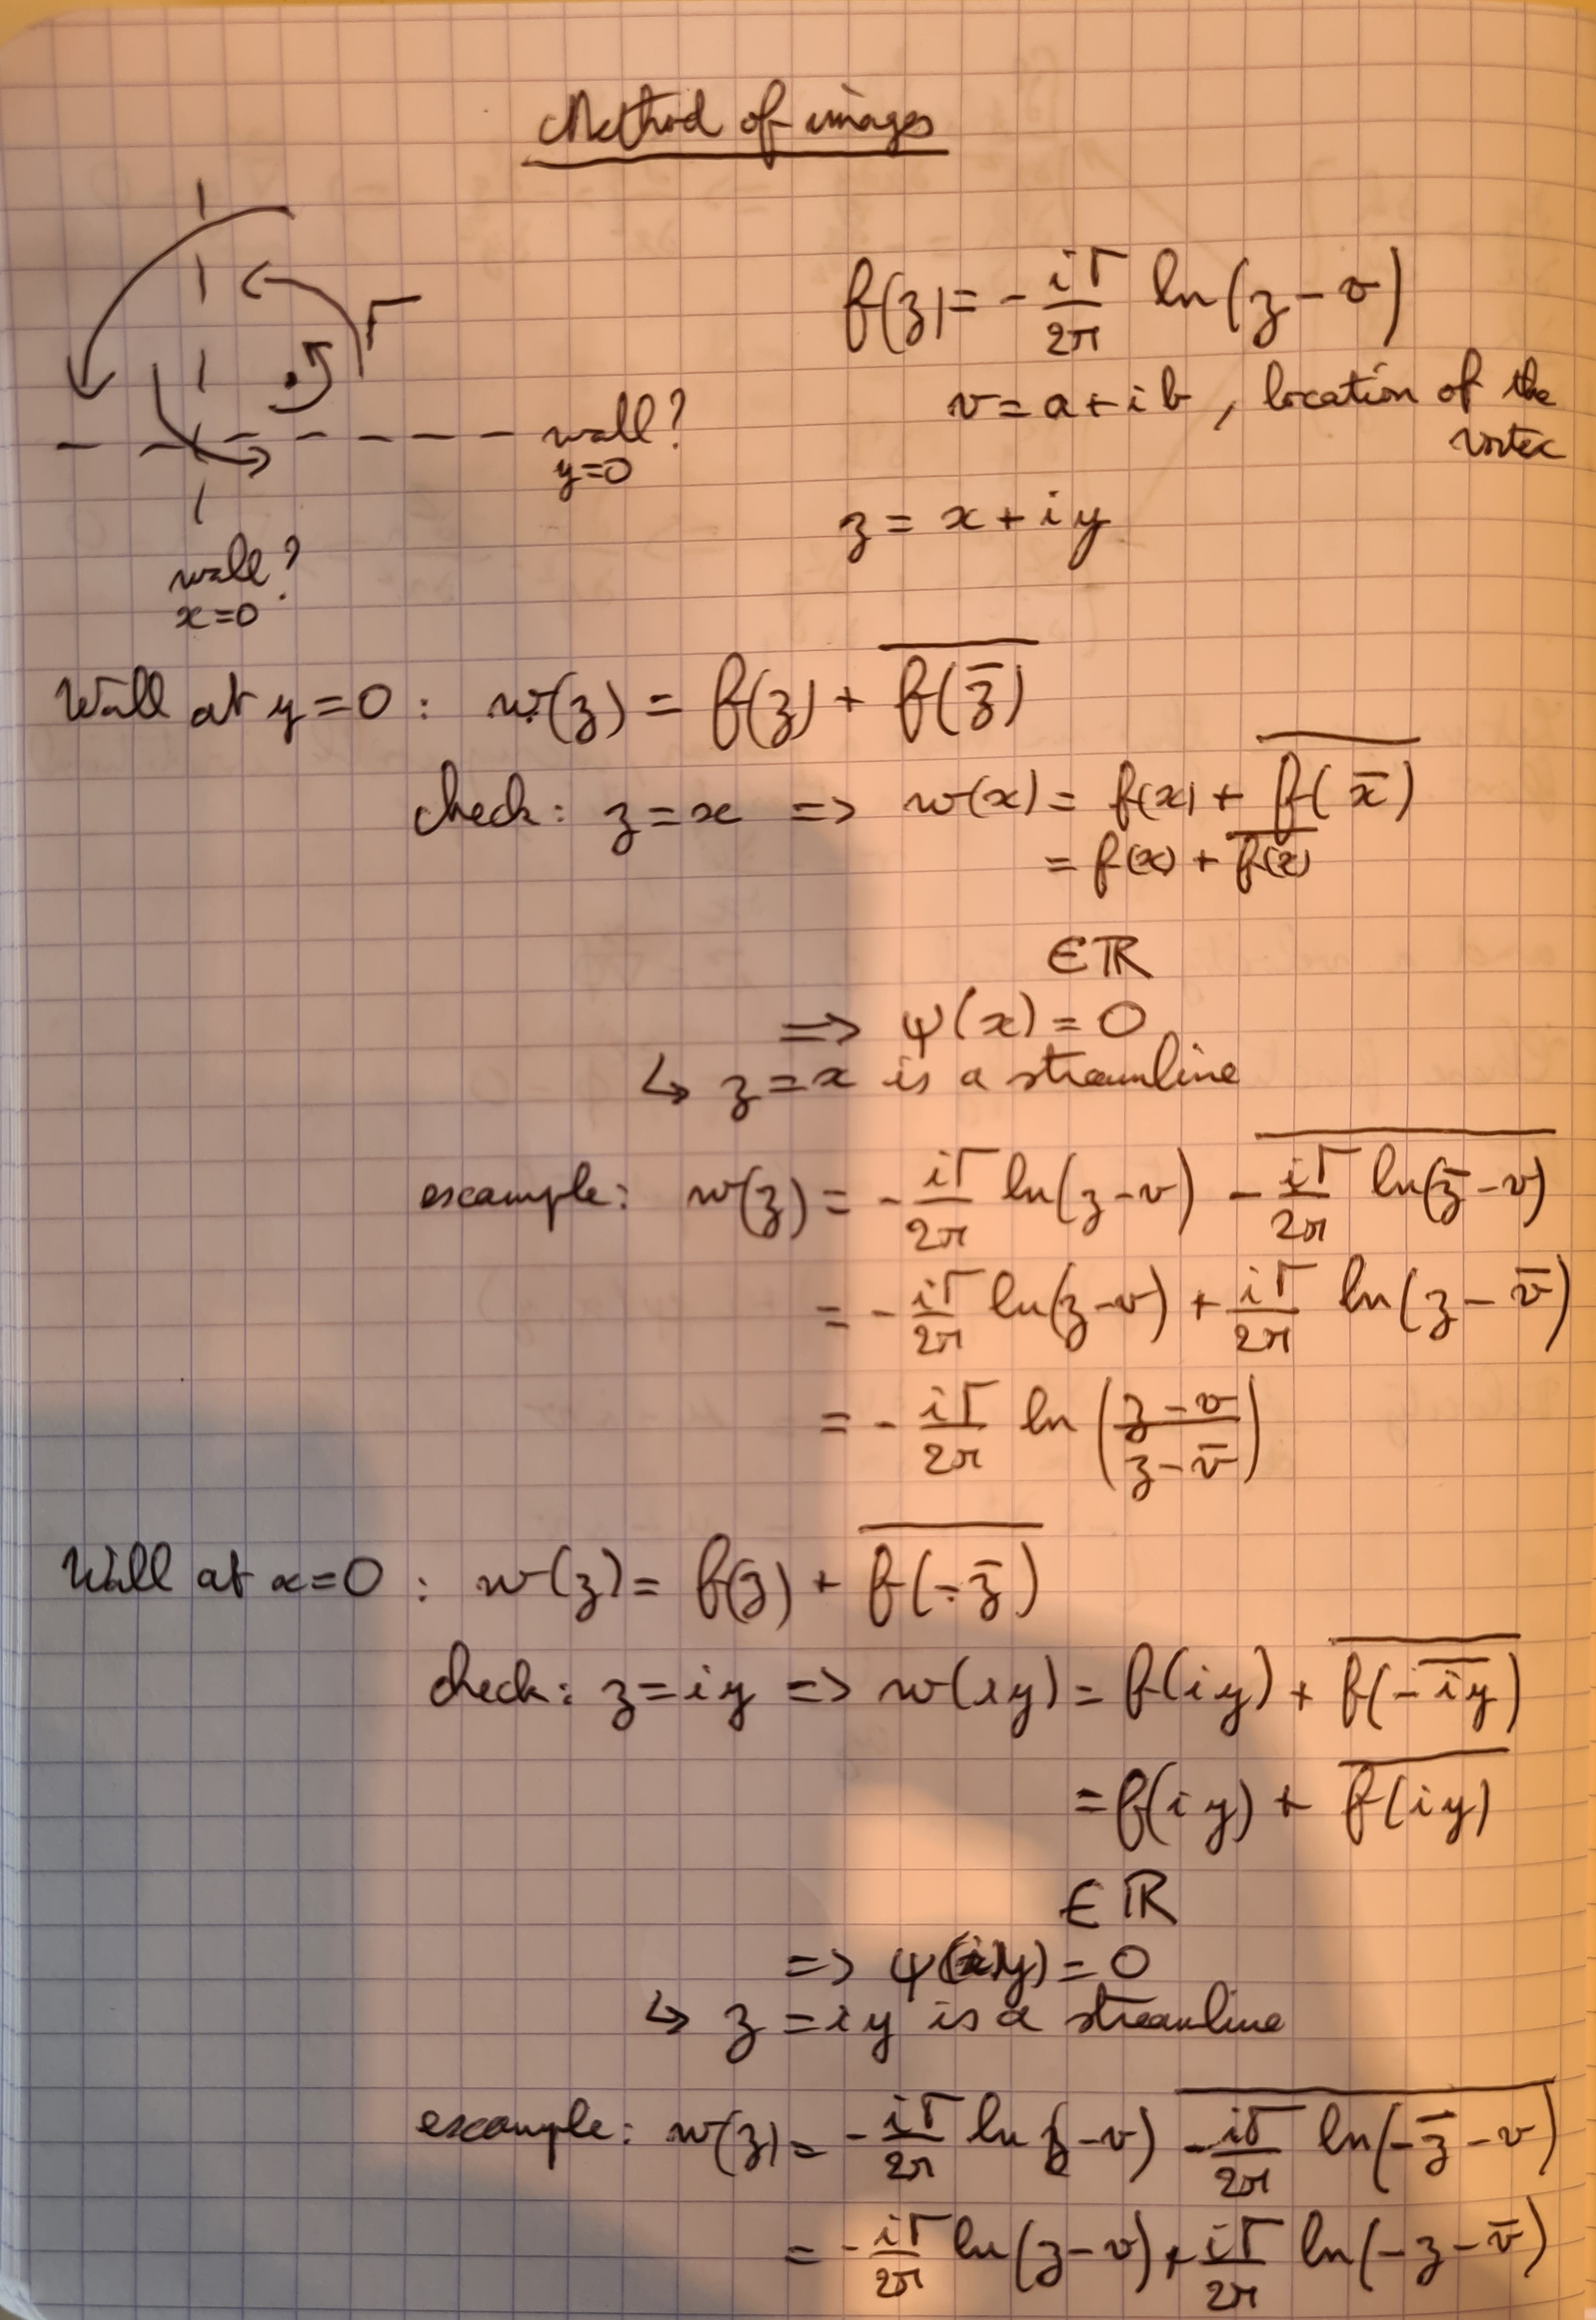 Method of images
Γ
f(z) = - iΓ/2π ln(z - v)
v = a + ib, location of the
vortex
wall?
y=0
z = x + iy
wall?
x=0
Wall at y=0 : w(z) = f(z) + \overline{f(\bar{z})}
check: z=x => w(x) = f(x) + \overline{f(\bar{x})}
= f(x) + \overline{f(x)}
∈ ℝ
=> ψ(x) = 0
↳ z=x is a streamline
example: w(z) = - iΓ/2π ln(z-v) \overline{- iΓ/2π ln(\bar{z}-v)}
= - iΓ/2π ln(z-v) + iΓ/2π ln(z-\bar{v})
= - iΓ/2π ln((z-v)/(z-\bar{v}))
Wall at x=0 : w(z) = f(z) + \overline{f(-\bar{z})}
check: z=iy => w(iy) = f(iy) + \overline{f(-\overline{iy})}
= f(iy) + \overline{f(iy)}
∈ ℝ
=> ψ(iy) = 0
↳ z=iy is a streamline
example: w(z) = - iΓ/2π ln(z-v) \overline{- iΓ/2π ln(-\bar{z}-v)}
= - iΓ/2π ln(z-v) + iΓ/2π ln(-z-\bar{v})